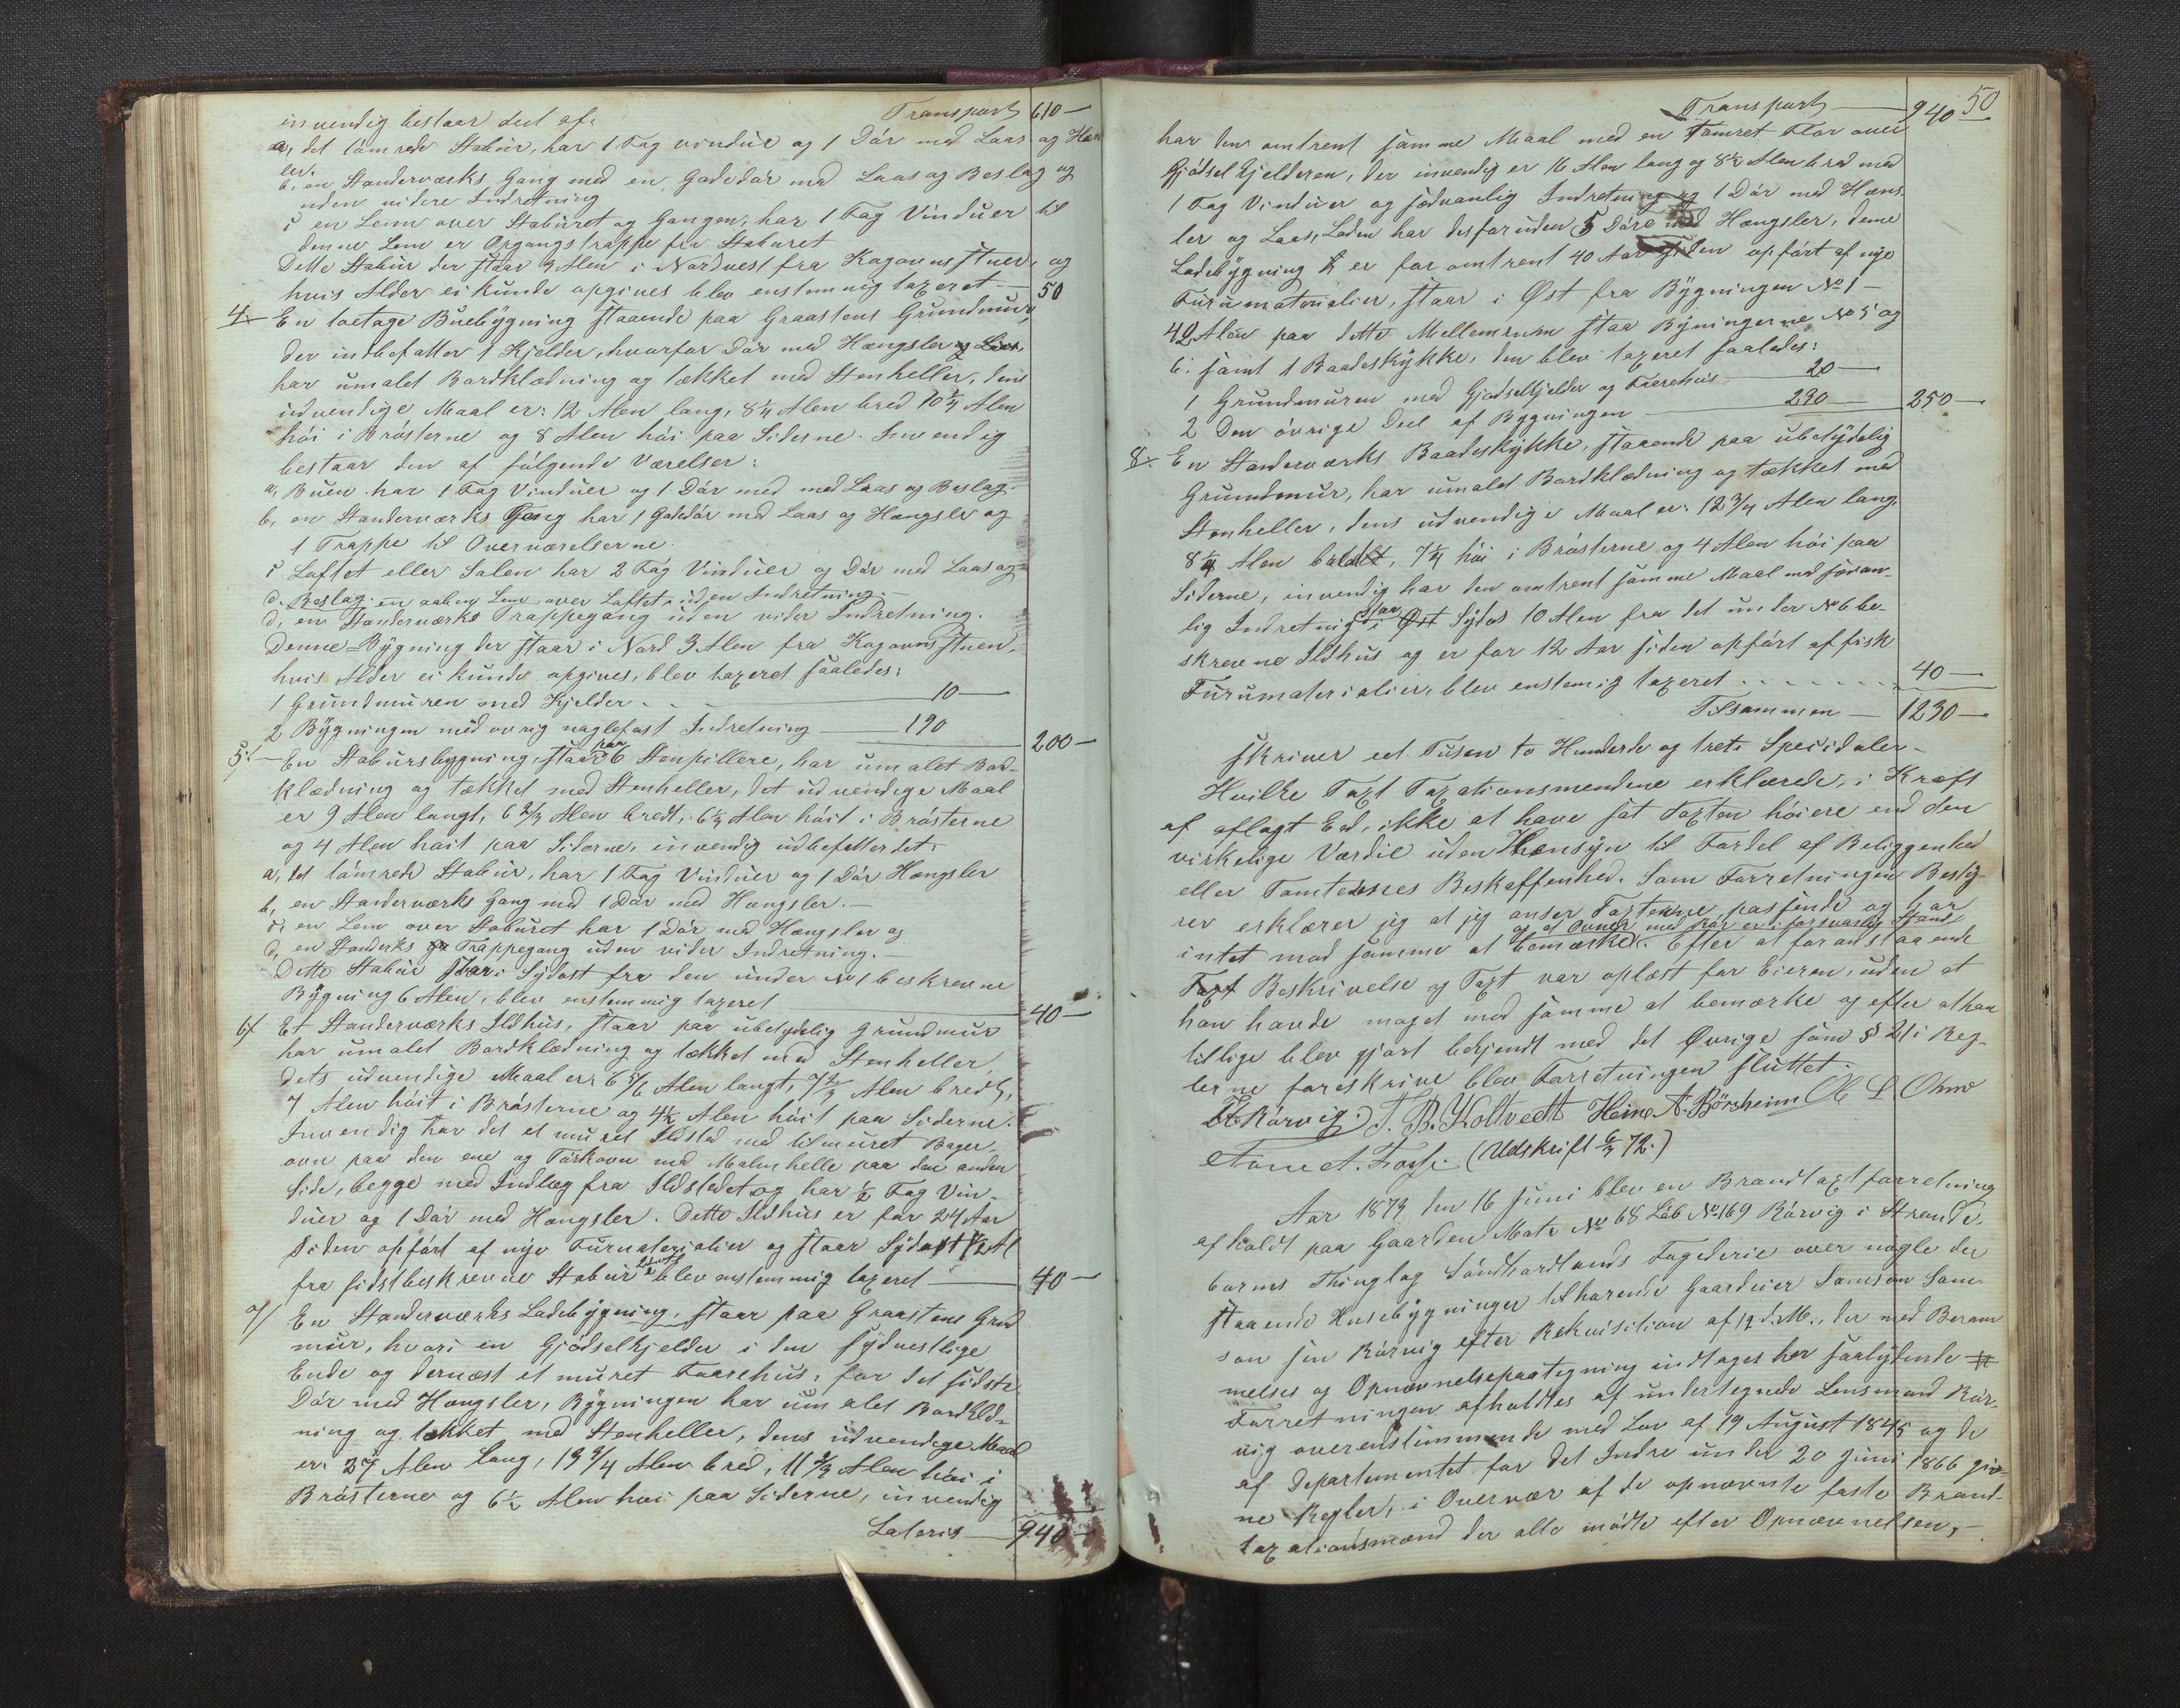 Transport 610 —
invendig bestaar det af:
a, det tømrede Stabur, har 1 Fag vindue og 1 Dør med Laas og Hæng
ler.
b, en Standerværks Gang med en Gadedør med Laas og Beslag og
uden videre Indretning
c en Lem over Staburet og Gangen, har 1 Fag Vinduer til
denne Lem er Opgangstrappe fra Staburet
Dette Stabur der staar 3 Alen i Nordvest fra Kagovnsstuen, og
hvis Alder ei kunde opgives blev enstemmig taxeret — 50
4. En toetage Buebygning staaende paa Graastens Grundmur,
der indbefatter 1 Kjelder, hvorfor Dør med Hængsler og Laas,
har umalet Bordklædning og tækket med Stenheller, dens
udvendige Maal er: 12 Alen lang, 8 1/4 Alen bred 10 3/4 Alen
høi i Brøsterne og 8 Alen høi paa Siderne. Invendig
bestaar den af følgende Værelser:
a, Buen har 1 Fag Vinduer og 1 Dør med med Laas og Beslag.
b, en Standerværks Gang har 1 Gadedør med Laas og Hængsler og
1 Trappe til Overværelserne.
c Loftet eller Salen har 2 Fag Vinduer og Dør med Laas og
d. Beslag. en aaben Lem over Loftet uden Indretning.—
d, en Standerværks Trappegang uden vider Indretning.
Denne Bygning der staar i Nord 3 Alen fra Kagovnsstuen,
hvis Alder ei kunde opgives, blev taxeret saaledes:
1 Grundmuren med Kjelder — 10 —
2 Bygningen med øvrig naglefast Indretning — 190 200 —
5. — En Stabursbygning, staar paa 6 Stenpillere, har umalet Bord-
klædning og tækket med Stenheller, det udvendige Maal
er 9 Alen langt, 6 2/3 Alen bredt, 6 1/2 Alen høit i Brøsterne
og 4 Alen høit paa Siderne, invendig indbefatter det:
a, det tømrede Stabur, har 1 Fag Vinduer og 1 Dør Hængsler
b, en Standerværks Gang med 1 Dør med Hængsler. —
c, en Lem over Staburet har 1 Dør med Hængsler og
d, en Standerks Trappegang uden vider Indretning. —
Dette Stabur staar i Sydost fra den under No 1 beskrevne
Bygning 6 Alen, blev enstemmig taxeret 40 —
6/ Et Standerværks Ildhus, staar paa ubetydelig Grundmur
har umalet Bordklædning og tækket med Stenheller,
dets udvendige Maal er: 6 5/6 Alen langt, 7 2/3 Alen bredt,
7 Alen høit i Brøsterne og 4 1/2 Alen høit paa Siderne.
Invendig har det et muret Ildsted med tilmuret Bager-
ovn paa den ene og Tørkovn med Malmhelle paa den anden
Side, begge med Indlæg fra Ildstedet og har 1/2 Fag Vin-
duer og 1 Dør med Hængsler. Dette Ildhus er for 24 Aar
siden opført af nye Furumaterialier og staar Sydost
fra sidstbeskrevne Stabur blev enstemmig taxeret — 40 —
7/ En Standerværks Ladebygning, staar paa Graastens Grund
mur, hvori en Gjødselkjelder i den sydvestlige
Ende og dernæst et muret Faarehus, for det sidste
Dør med Hængsler, Bygningen har umalet Bordklæd-
ning og tækket med Stenheller, dens udvendige Maal
er: 27 Alen lang, 13 3/4 Alen bred, 11 2/3 Alen høi i
Brøsterne og 6 1/2 Alen høi paa Siderne, invendig
Lateris — 940 —
50
Transport — 940
har den omtrent samme Maal med en Tømret Flor over
Gjødsel Kjelderen, der invendig er 16 Alen lang og 8 1/2 Alen bred med
1 Fag Vinduer og sedvanlig Indretning og 1 Dør med Hæns-
ler og Laas, Laden har desforuden 5 Døre med Hængsler, denne
Ladebygning er for omtrent 40 Aar siden opført af nye
Furumaterialier, staar i Øst fra Bygningen No 1 —
42 Alen paa dette Mellemrum staa Bygningerne No 5 og
6. samt 1 Baadeskykke, den blev taxeret saaledes:
1 Grundmuren med Gjødselkjelder og Faarehus 20 —
2 Den øvrige Deel af Bygningen — 230 — 250 —
8. En Standerværks Baadeskykke, staaende paa ubetydelig
Grundmur, har umalet Bordklædning og tækket med
Stenheller, dens udvendige Maal er: 12 3/4 Alen lang,
8 1/4 Alen 7 1/4 høi i Brøsterne og 4 Alen høi paa
Siderne, invendig har den omtrent samme Maal med sedvan-
lig Indretnig staar i Øst Sydost 10 Alen fra det under No 6 be-
skrevne Ildhus og er for 12 Aar siden opført af fisk
Furumaterialier, blev enstemig taxeret . . . . . . 40 —
Tilsammen — 1230 —
skriver eet Tusen to Hunderde og treti Speciedaler —
Hvilke Taxt Taxationsmendene erklærede, i Kraft
af aflagt Eed, ikke at have sat Taxten høiere end den
virkelige Værdie uden Hensyn til Fordel af Beliggenhed
eller Tomternes Beskaffenhed. Som Forretningen Besty-
rer erklærer jeg at jeg anser Taxterne passende og har
og at Ovner med Rør er i forsvarlig Stand
intet mod samme at bemærke. Efter at foranstaaende
Taxt Beskrivelse og Taxt var oplæst for Eieren, uden at
han havde noget mod samme at bemærke og efter at han
tillige blev gjort bekjendt med det Øvrige som § 21 i Reg-
lerne foreskrive blev Forretningen sluttet.
Rørvig J. B. Holtvedt Heine A. Børsheim Ole L Ohne
Tone A. Fosse. (Udskrift 6/7 72.)
Aar 1873 den 16 Juni blev en Brandtaxtforretning
afholdt paa Gaarden Matr No 68 Løb No 169 Rørvig i Strande-
barms Thinglag Søndhordlands Fogderie over nogle der
staaende Husebygninger tilhørende Gaardeier Samson Sam-
son sen Rørvig efter Rekvisition af 12 d. M., der med Beram
melses og Opnævnelsepaategning indtages her saalydende #
Forretningen afholdtes af undertegnede Lensmand Rør-
vig overenstemmende med Lov af 19 August 1845 og de
af Departementet for det Indre under 20 Juni 1866 giv-
ne Regler, i Overvær af de opnævnte faste Brand-
taxationsmænd der alle mødte efter Opnævnelsen, —